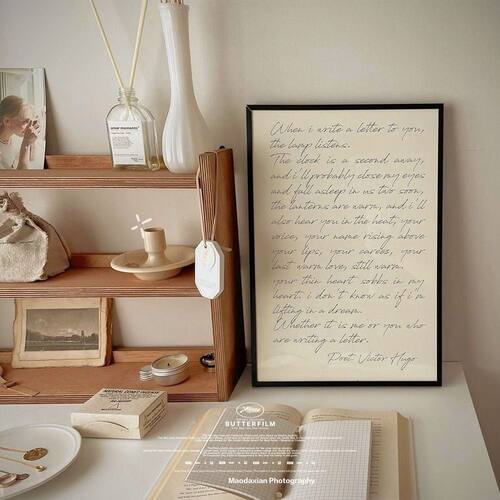 When i write a letter to you,
the lamp listens.
The clock is a second away,
and i'll probably close my eyes
and fall asleep in us two soon,
the lanterns are warm, and i'll
also hear you in the heat, your
voice, your name rising above
your lips, your caress, your
last warm love, still warm.
your thin heart sobbs in my
heart. i don't know as if i'm
lifting in a dream.
Whether it is me or you who
are writing a letter.
Poet Victor Hugo
BUTTERFILM
Maodaxian Photography